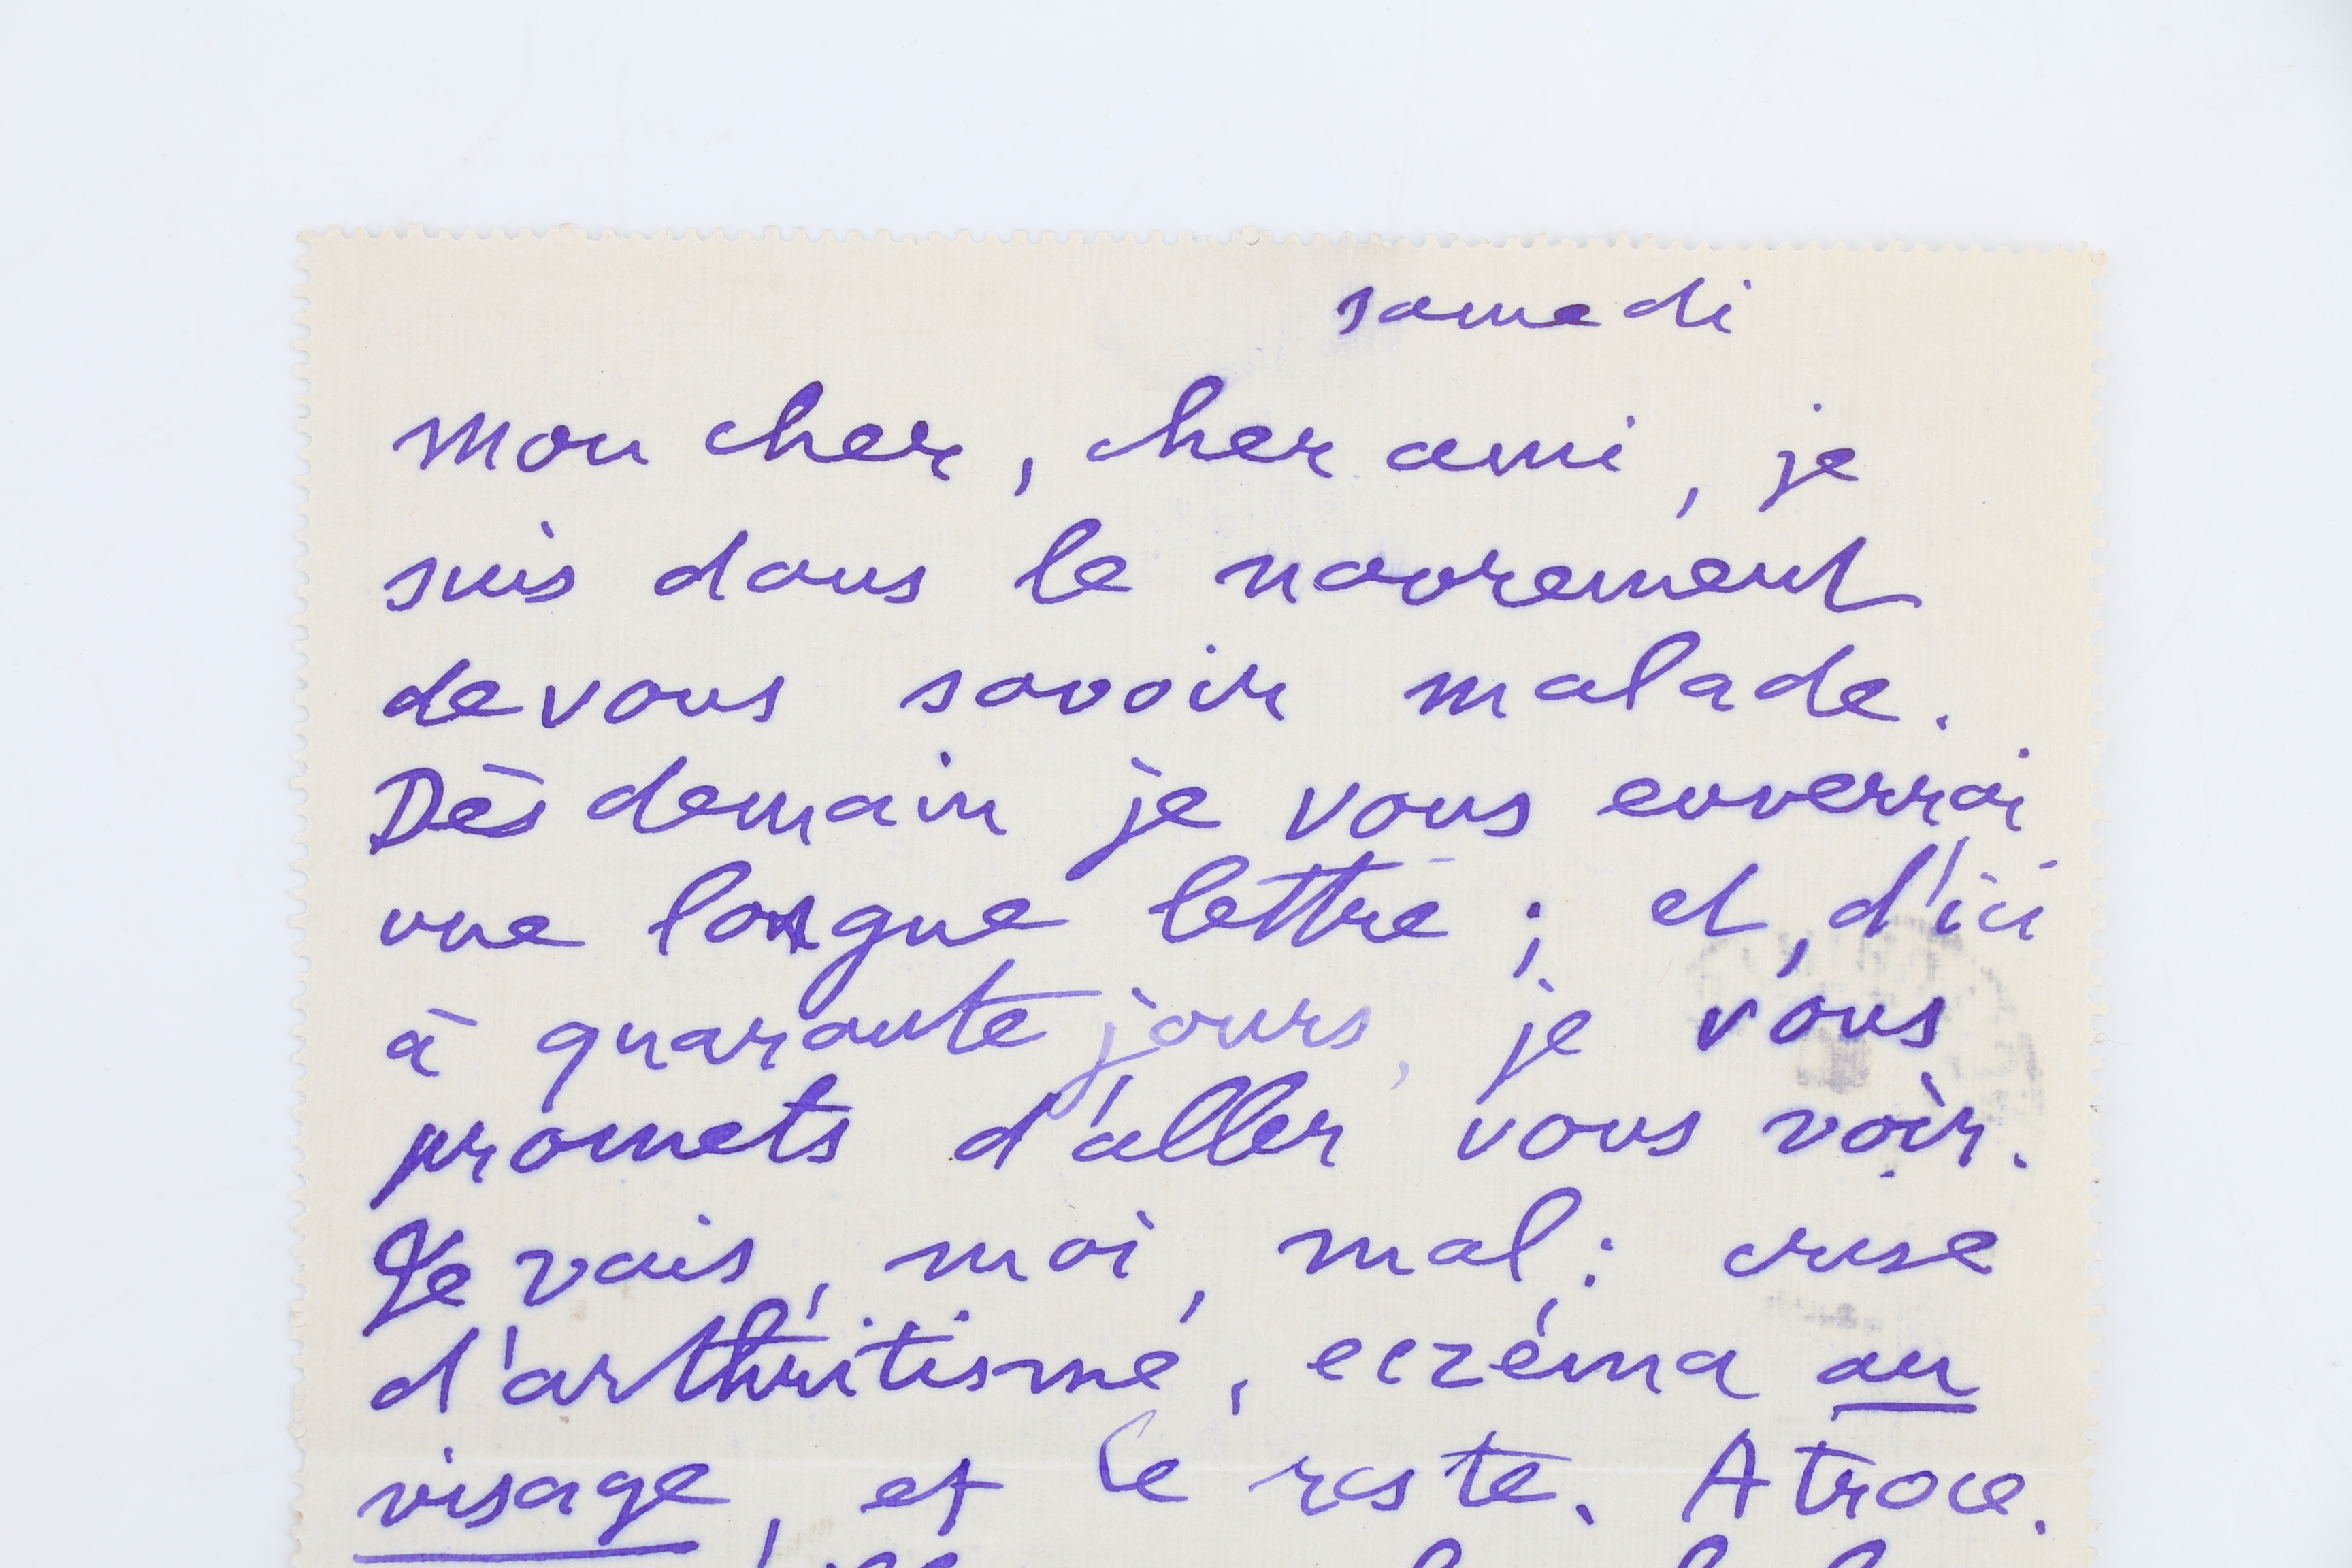 samedi
Mon cher, cher ami, je
suis dans le navrement
de vous savoir malade.
Dès demain je vous enverrai
une longue lettre ; et, d'ici
à quarante jours, je vous
promets d'aller vous voir.
Je vais, moi, mal : crise
d'arthritisme, eczéma au
visage, et le reste. Atroce.